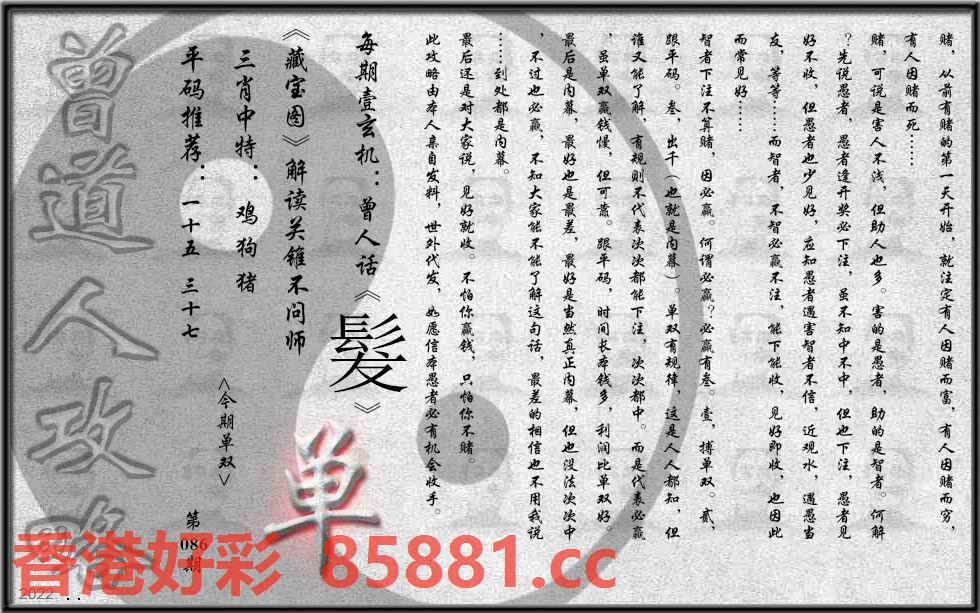 赌，从前有赌的第一天开始，就注定有人因赌而富，有人因赌而穷，
有人因赌而死……
赌，可说是害人不浅，但助人也多。害的是愚者，助的是智者。何解
？先说愚者，愚者逢开奖必下注，虽不知中不中，但也下注，愚者见
好不收，但愚者也少见好，应知愚者遇害智者不信，近观水，遇愚当
友，等等……而智者，不智必赢不注，能下能收，见好即收，也因此
而常见好……
智者下注不算赌，因必赢。何谓必赢？必赢有叁。壹，搏单双。贰，
跟平码。叁，出千（也就是内幕）。单双有规律，这是人人都知，但
谁又能了解，有规则不代表次次都能下注，次次都中。而是代表必赢
，虽单双赢钱慢，但可靠。跟平码，时间长本钱多，利润比单双好。
最后是内幕，最好也是最差，最好是当然真正内幕，但也没法次次中
，不过也必赢，不知大家能不能了解这句话，最差的相信也不用我说
……到处都是内幕。
最后还是对大家说，见好就收。不怕你赢钱，只怕你不赌。
此攻略由本人亲自发料，世外代发，如愿信本愚者必有机会收手。
每期壹玄机：曾人话《髪》
《藏宝图》解读关雎不问师
三肖中特：鸡狗猪
平码推荐：一十五 三十七
<今期单双>
单
第086期
曾道人攻略
香港好彩 85881.cc
2022